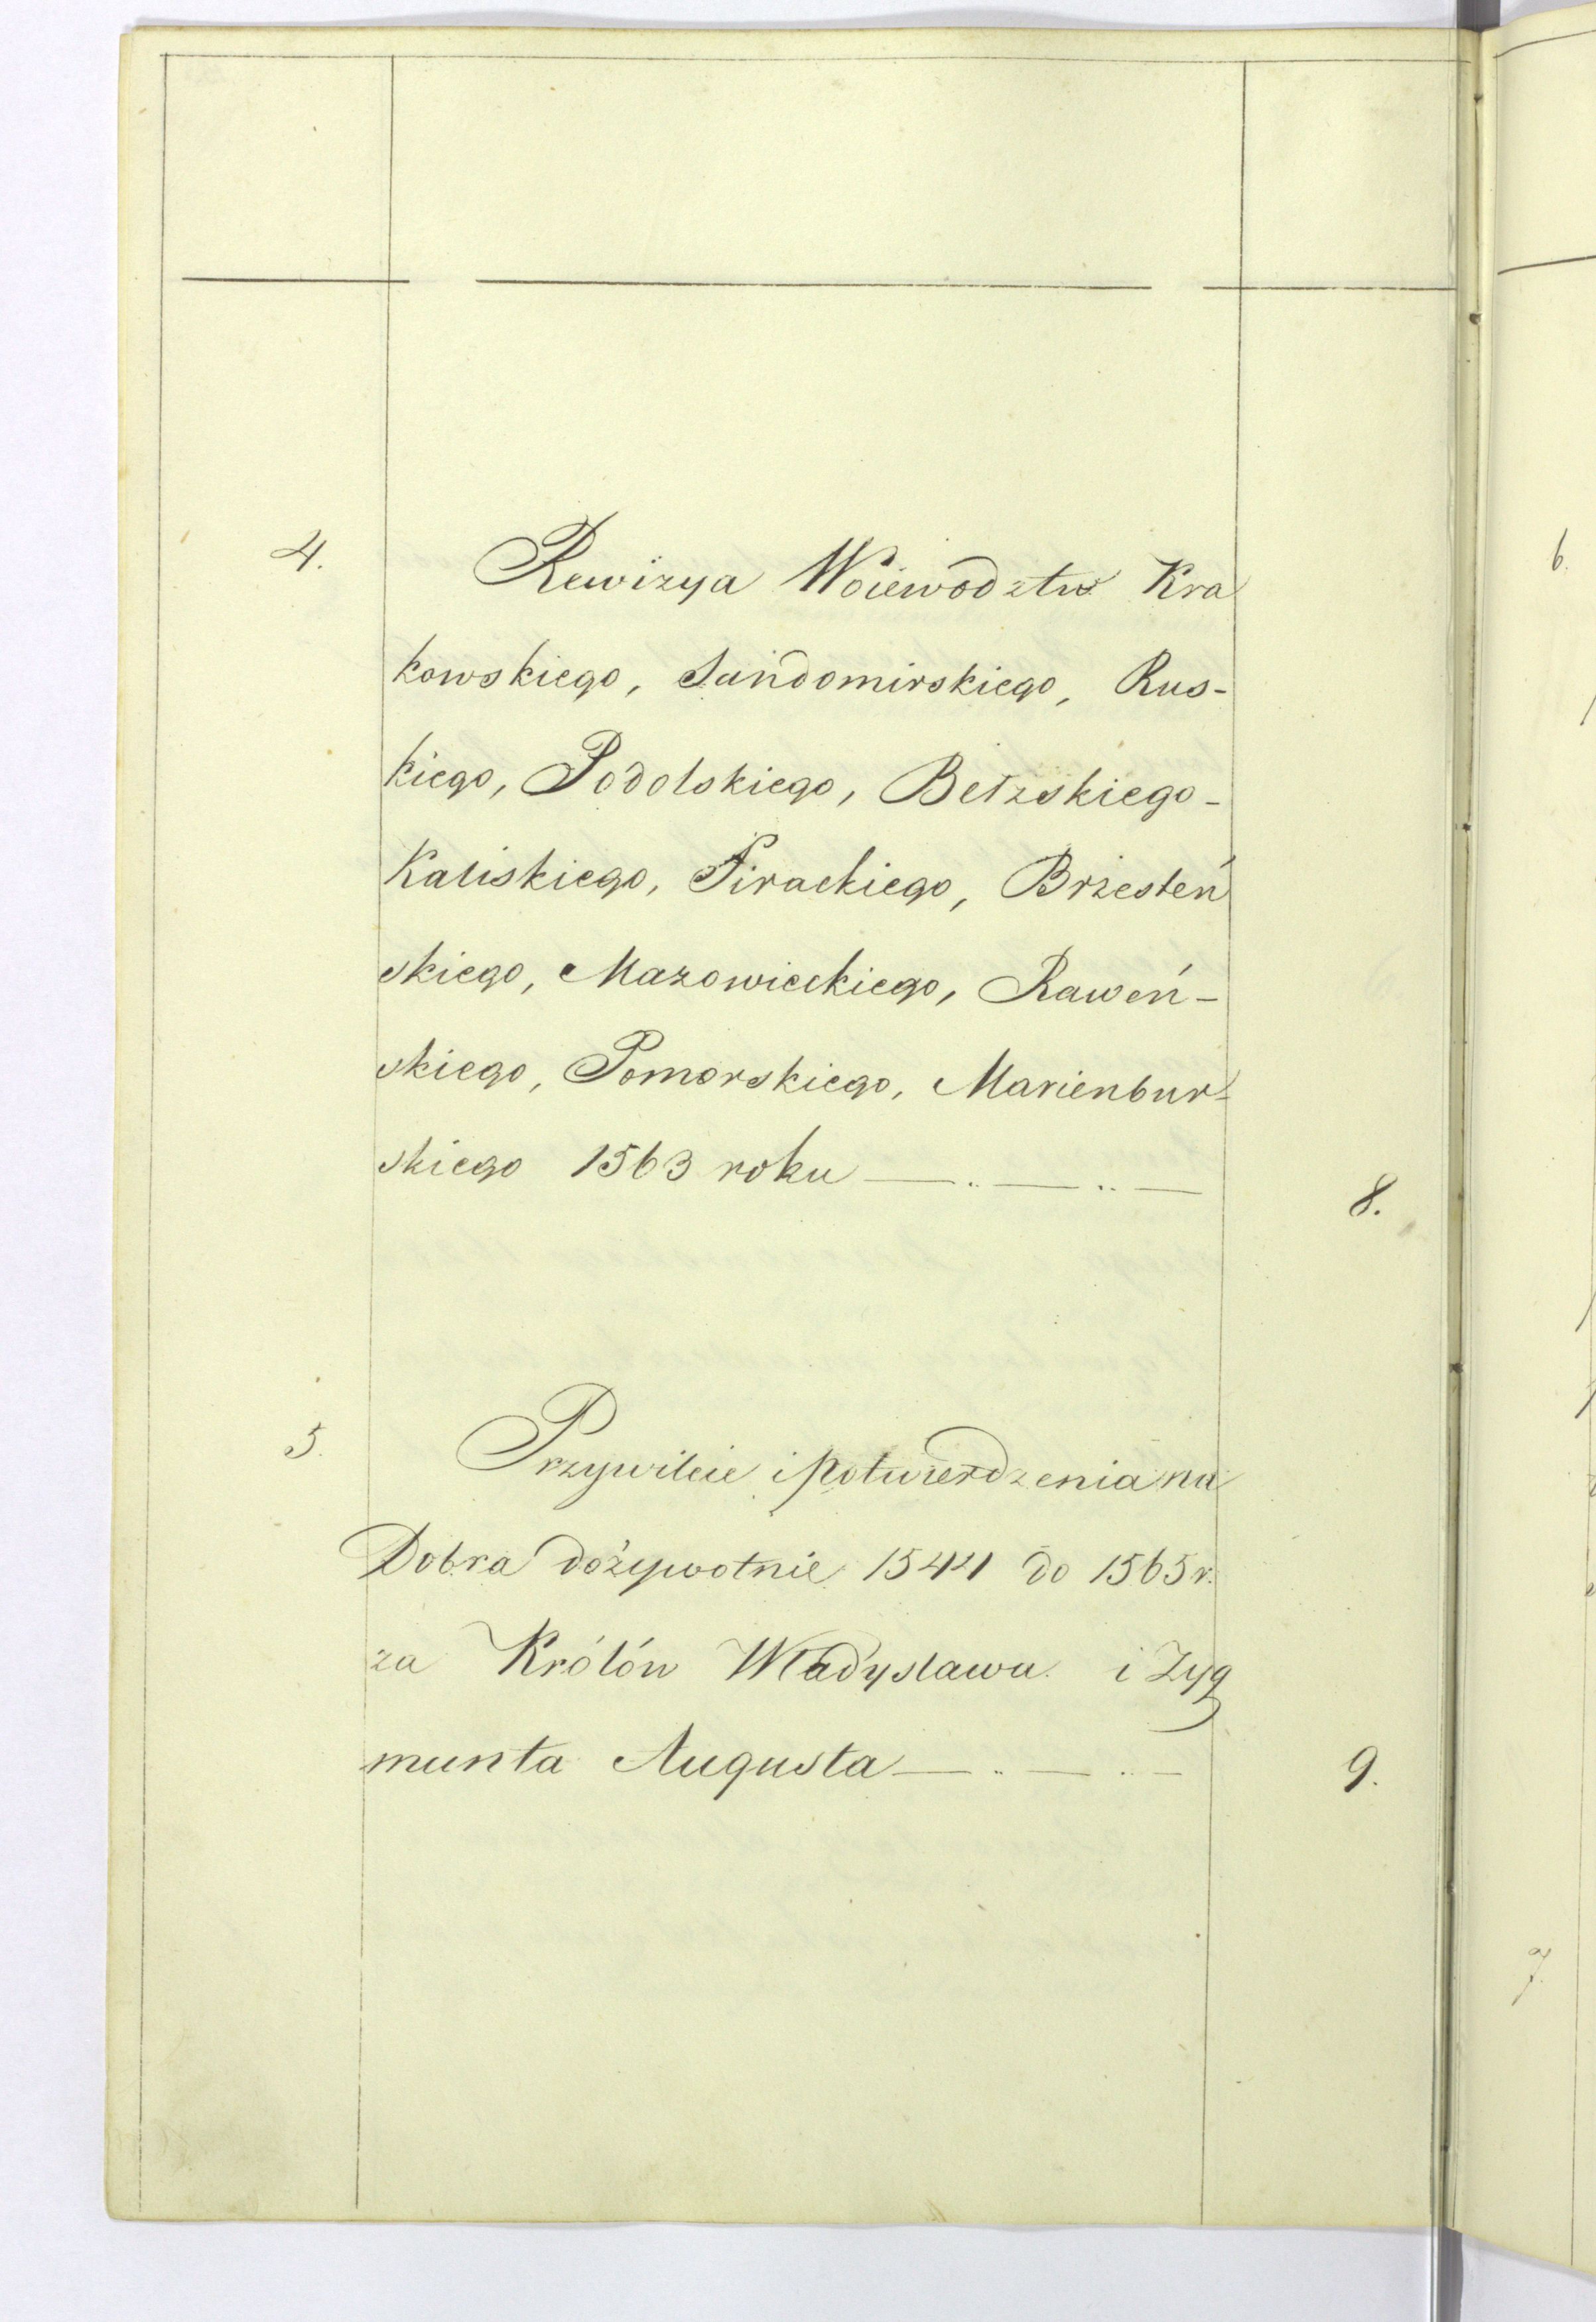 4. Rewizya Woiewodztw Kra
kowskiego, Sandomirskiego, Rus-
kiego, Podolskiego, Bełzskiego-
Kaliskiego, Sirackiego, Brzesteń
skiego, Mazowieckiego, Raweń-
skiego, Pomorskiego, Marienbur-
skiego 1563 roku — .. — .. — 8.
5. Przywileie i potwierdzenia na
Dobra dożywotnie 1544 do 1565 r.
za Królów Władysława i Zyg
munta Augusta — .. — .. — 9.
6.
7.